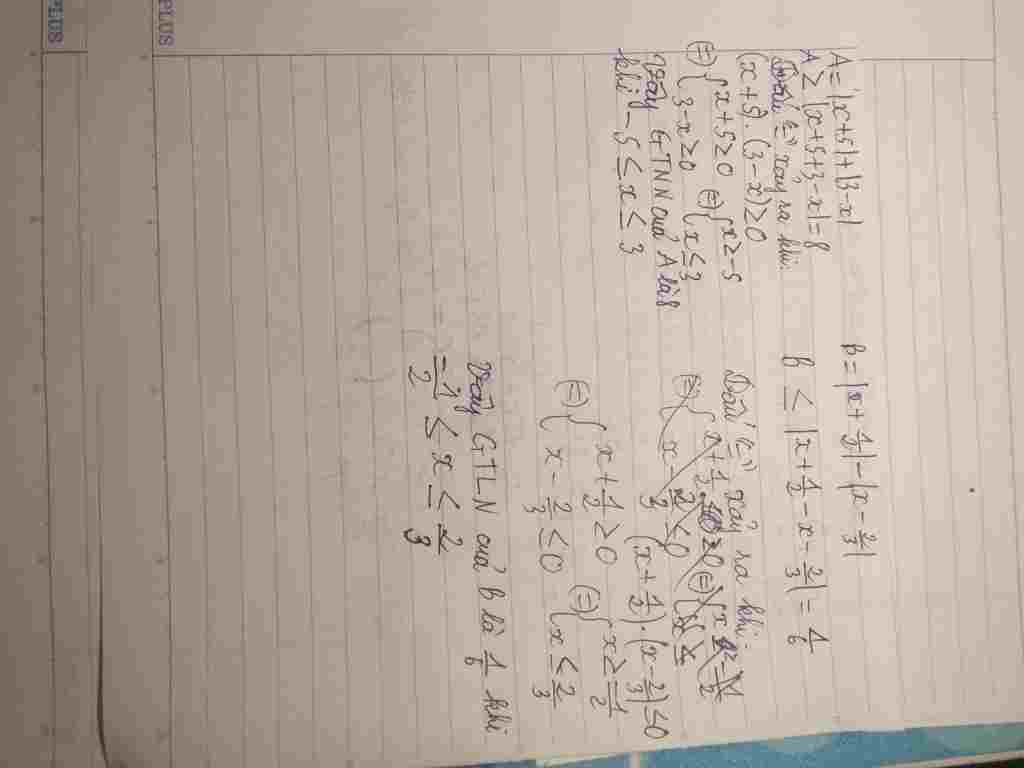 PLUS
PLUS
A = |x+5|+|3-x|
A ≥ |x+5+3-x| = 8
Dấu "=" xảy ra khi:
(x+5).(3-x) ≥ 0
(=) { x+5 ≥ 0 (=) { x ≥ -5
{ 3-x ≥ 0 { x ≤ 3
Vậy GTNN của A là 8
khi -5 ≤ x ≤ 3
B = |x + 1/2| - |x - 2/3|
B ≤ |x + 1/2 - x - 2/3| = 1/6
Dấu "=" xảy ra khi
(x + 1/2).(x - 2/3) ≤ 0
(=) { x + 1/2 ≥ 0 (=) { x ≥ -1/2
{ x - 2/3 ≤ 0 { x ≤ 2/3
Vậy GTLN của B là 1/6 khi
-1/2 ≤ x ≤ 2/3